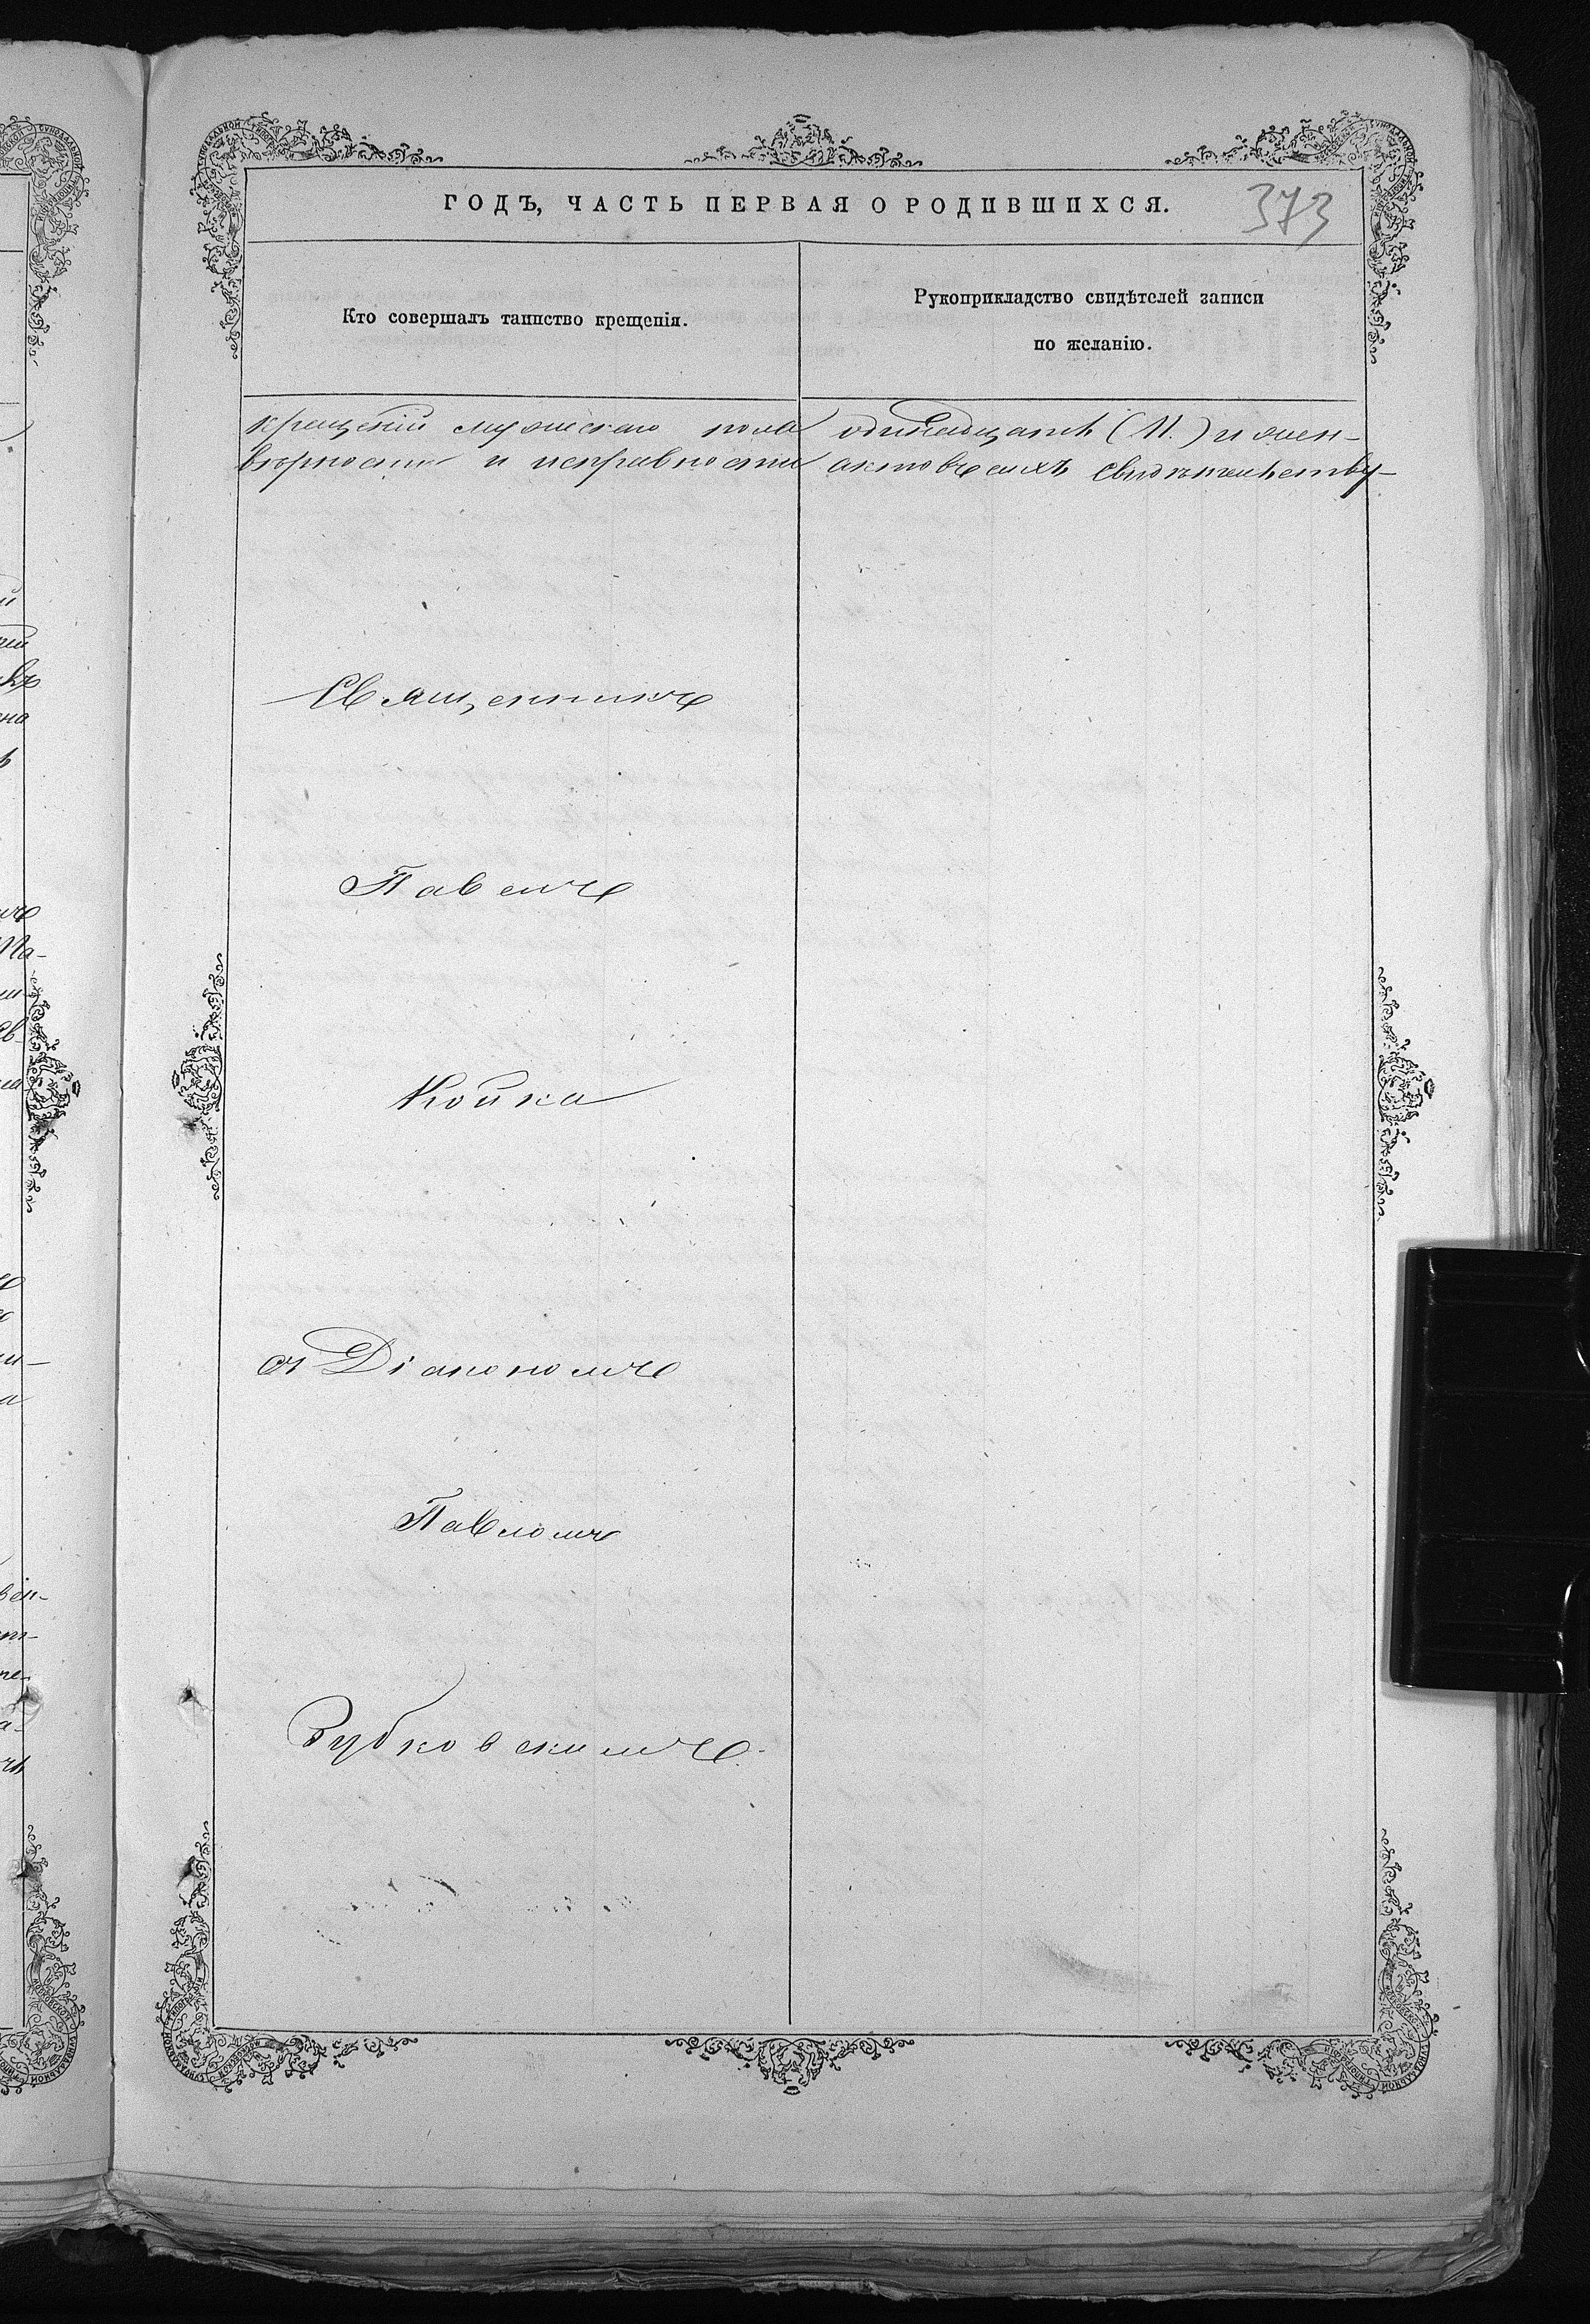 ГОДЪ, ЧАСТЬ ПЕРВАЯ О РОДИВШИХСЯ.
373
Кто совершалъ таинство крещенія.
Рукоприкладство свидѣтелей записи
по желанію.
крещеній мужескаго пола одинадцать (11.) и жен-
вѣрности и исправности актовъ сихъ свидѣтельству-
Священникъ
Павелъ
Койка
съ Діакономъ
Павломъ
Зубковскимъ.